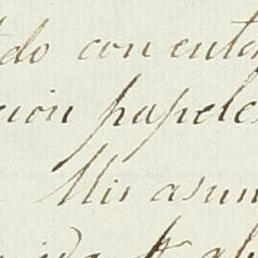 do con ente
cion papeles
Mis asun